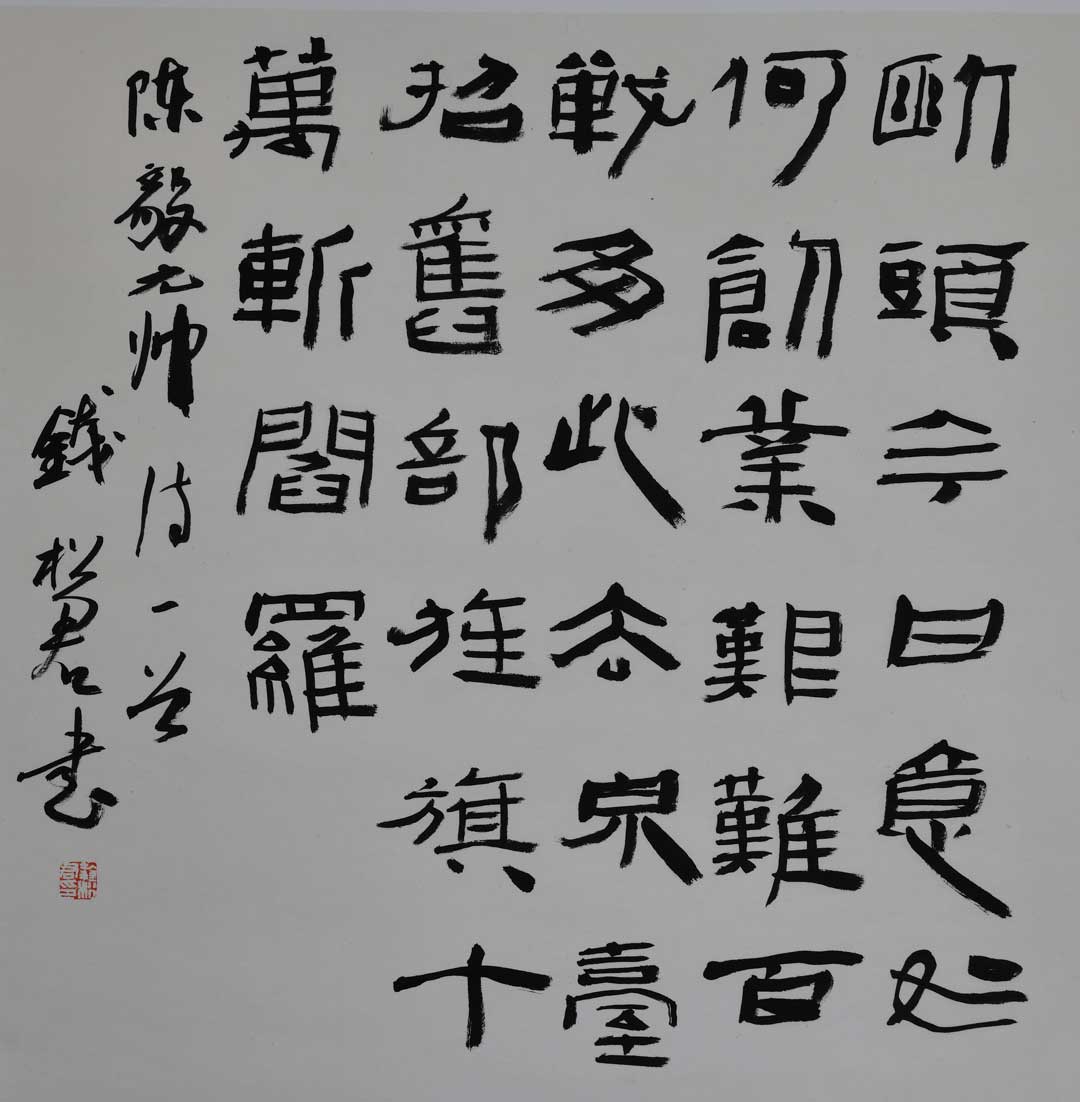 斷頭今日意如
何創業艱難百
戰多此去泉臺
招舊部旌旗十
萬斬閻羅
陈毅元帅诗一首
錢松君書
錢松君印